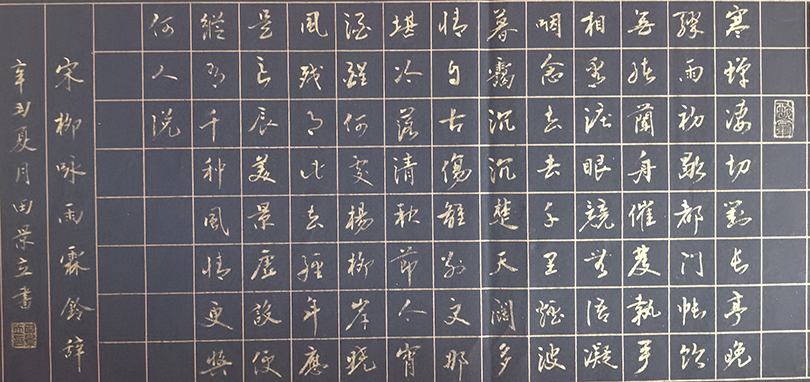 寒蟬凄切對長亭晚
驟雨初歇都門帐飲
無緒蘭舟催發執手
相看淚眼競無語凝
咽念去去千里煙波
暮靄沉沉楚天闊多
情自古傷離別更那
堪冷落清秋節今宵
酒醒何處楊柳岸曉
風殘月此去經年應
是良辰美景虛設便
縱有千種風情更與
何人說
宋柳咏雨霖鈴辞
辛丑夏月田景立書